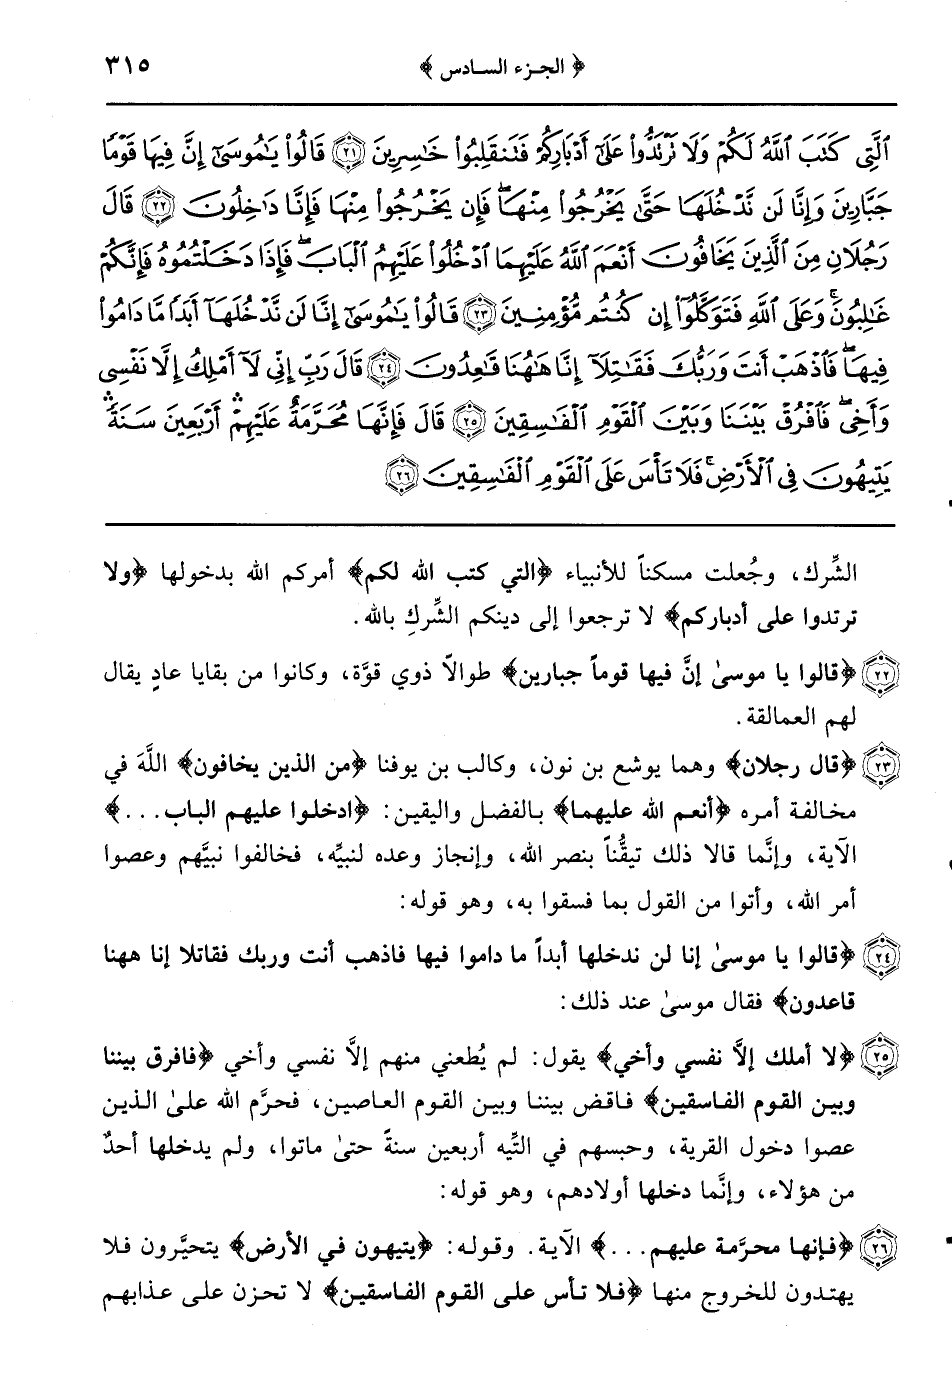 ﴿ الجزء السادس ﴾ ٣١٥
ٱلَّتِى كَتَبَ ٱللَّهُ لَكُمْ وَلَا تَرْتَدُّوا۟ عَلَىٰٓ أَدْبَارِكُمْ فَتَنقَلِبُوا۟ خَٰسِرِينَ ﴿٢١﴾ قَالُوا۟ يَٰمُوسَىٰٓ إِنَّ فِيهَا قَوْمًا
جَبَّارِينَ وَإِنَّا لَن نَّدْخُلَهَا حَتَّىٰ يَخْرُجُوا۟ مِنْهَا ۖ فَإِن يَخْرُجُوا۟ مِنْهَا فَإِنَّا دَٰخِلُونَ ﴿٢٢﴾ قَالَ
رَجُلَانِ مِنَ ٱلَّذِينَ يَخَافُونَ أَنْعَمَ ٱللَّهُ عَلَيْهِمَا ٱدْخُلُوا۟ عَلَيْهِمُ ٱلْبَابَ ۖ فَإِذَا دَخَلْتُمُوهُ فَإِنَّكُمْ
غَٰلِبُونَ ۚ وَعَلَى ٱللَّهِ فَتَوَكَّلُوٓا۟ إِن كُنتُم مُّؤْمِنِينَ ﴿٢٣﴾ قَالُوا۟ يَٰمُوسَىٰٓ إِنَّا لَن نَّدْخُلَهَآ أَبَدًا مَّا دَامُوا۟
فِيهَا ۖ فَٱذْهَبْ أَنتَ وَرَبُّكَ فَقَٰتِلَآ إِنَّا هَٰهُنَا قَٰعِدُونَ ﴿٢٤﴾ قَالَ رَبِّ إِنِّى لَآ أَمْلِكُ إِلَّا نَفْسِى
وَأَخِى ۖ فَٱفْرُقْ بَيْنَنَا وَبَيْنَ ٱلْقَوْمِ ٱلْفَٰسِقِينَ ﴿٢٥﴾ قَالَ فَإِنَّهَا مُحَرَّمَةٌ عَلَيْهِمْ ۛ أَرْبَعِينَ سَنَةً ۛ
يَتِيهُونَ فِى ٱلْأَرْضِ ۚ فَلَا تَأْسَ عَلَى ٱلْقَوْمِ ٱلْفَٰسِقِينَ ﴿٢٦﴾
الشِّرك، وجُعلت مسكناً للأنبياء ﴿التي كتب الله لكم﴾ أمركم الله بدخولها ﴿ولا
ترتدوا على أدباركم﴾ لا ترجعوا إلى دينكم الشِّركِ بالله.
(٢٢) ﴿قالوا يا موسىٰ إنَّ فيها قوماً جبارين﴾ طوالاً ذوي قوَّة، وكانوا من بقايا عادٍ يقال
لهم العمالقة.
(٢٣) ﴿قال رجلان﴾ وهما يوشع بن نون، وكالب بن يوفنا ﴿من الذين يخافون﴾ اللَّهَ في
مخالفة أمره ﴿أنعم الله عليهما﴾ بالفضل واليقين: ﴿ادخلوا عليهم الباب...﴾
الآية، وإنَّما قالا ذلك تيقُّناً بنصر الله، وإنجاز وعده لنبيِّه، فخالفوا نبيَّهم وعصوا
أمر الله، وأتوا من القول بما فسقوا به، وهو قوله:
(٢٤) ﴿قالوا يا موسىٰ إنا لن ندخلها أبداً ما داموا فيها فاذهب أنت وربك فقاتلا إنا ههنا
قاعدون﴾ فقال موسىٰ عند ذلك:
(٢٥) ﴿لا أملك إلاَّ نفسي وأخي﴾ يقول: لم يُطعني منهم إلاَّ نفسي وأخي ﴿فافرق بيننا
وبين القوم الفاسقين﴾ فاقض بيننا وبين القوم العاصين، فحرَّم الله علىٰ الذين
عصوا دخول القرية، وحبسهم في التِّيه أربعين سنةً حتىٰ ماتوا، ولم يدخلها أحدٌ
من هؤلاء، وإنَّما دخلها أولادهم، وهو قوله:
(٢٦) ﴿فإنها محرَّمة عليهم...﴾ الآية. وقوله: ﴿يتيهون في الأرض﴾ يتحيَّرون فلا
يهتدون للخروج منها ﴿فلا تأس على القوم الفاسقين﴾ لا تحزن على عذابهم